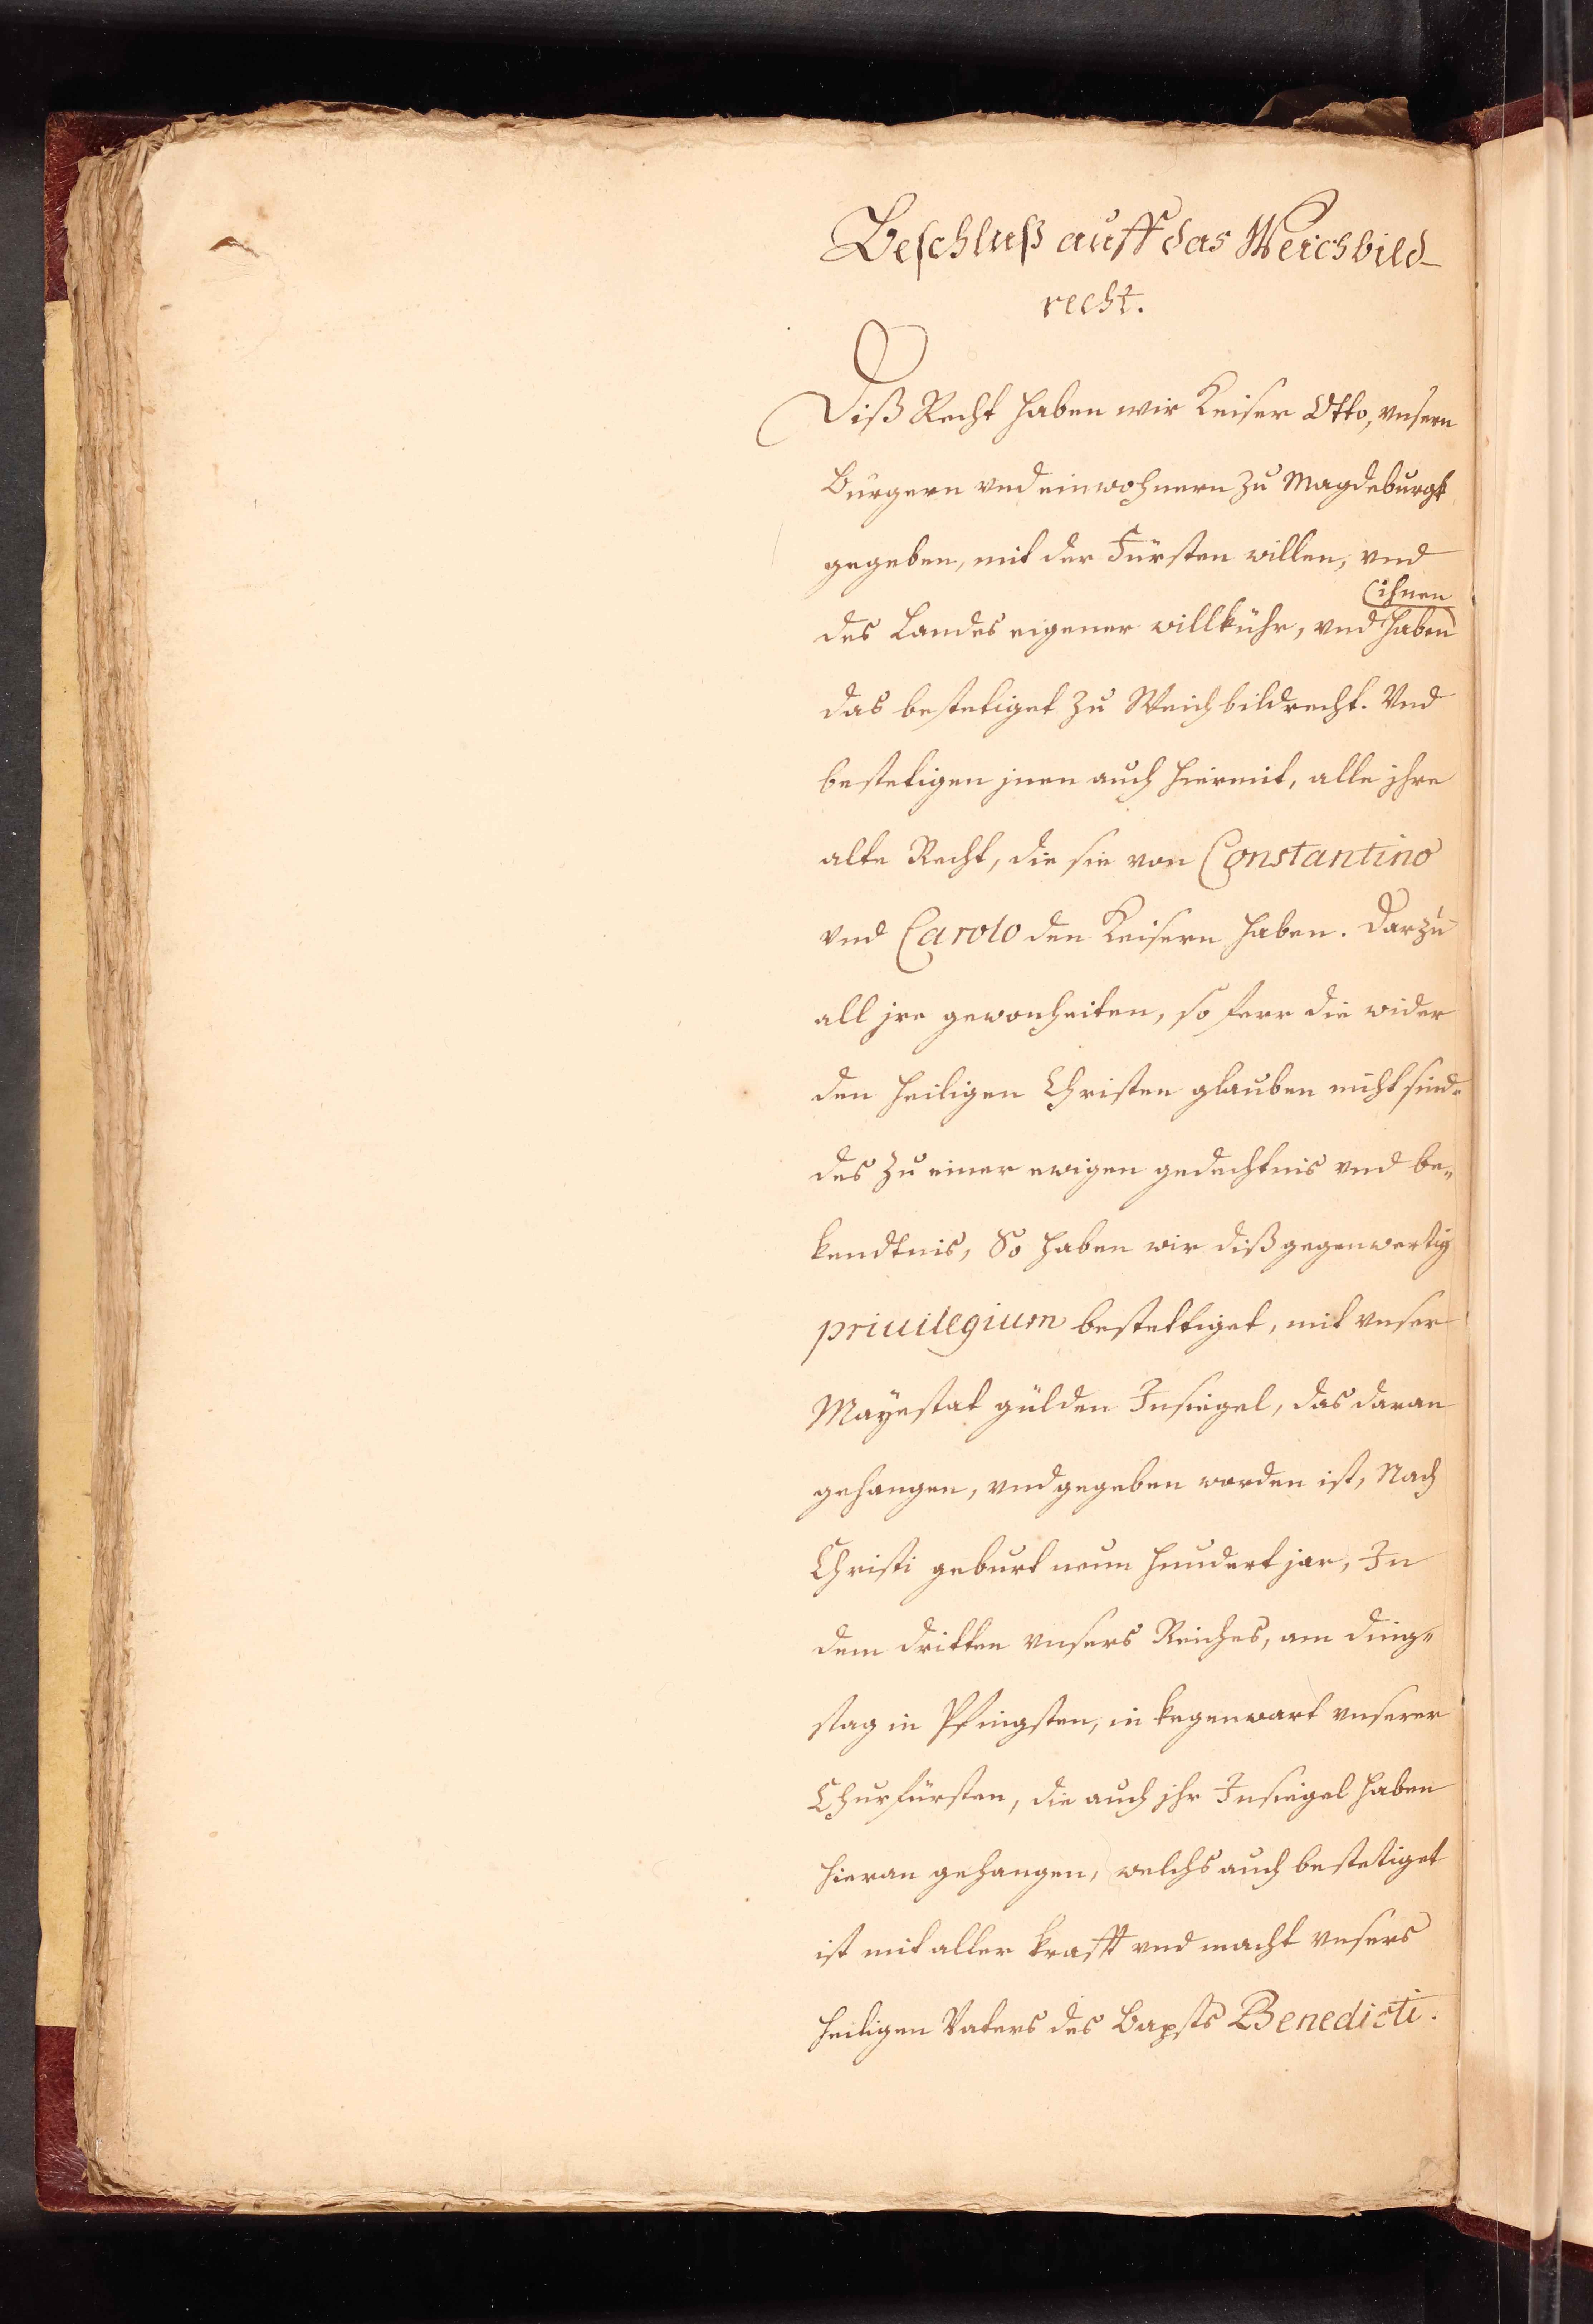 Beschluß auff das Weichbild-
recht.
Diß Recht haben wir Keiser Otto, vnsern
Bürgern vnd einwohnern zu Magdeburgk
gegeben, mit der Fürsten willen, vnd
ihnen
des Landes eigener willkühr, vnd haben
das bestetiget zu Weichbildrecht. Vnd
bestetigen jnen auch hiermit, alle jhre
alte Recht, die sie von Constantino
vnd Carolo den Keisern haben. Darzu
all jre gewonheiten, so ferr die wider
den heiligen Christen glauben nicht sind.
des zu einer ewigen gedechtnis vnd be„
kendtnis, So haben wir diß gegenwertig
priuilegium bestettiget, mit vnser
Mayestat gülden Insiegel, das daran
gehangen, vnd gegeben worden ist, Nach
Christi geburt neun hundert jar, In
dem dritten vnsers Reiches, am ding„
stag in Pfingsten, in kegenwart vnserer
Churfürsten, die auch jhr Insiegel haben
hieran gehangen, welchs auch bestetiget
ist mit aller krafft vnd macht vnsers
heiligen Vaters des Bapsts Benedicti.